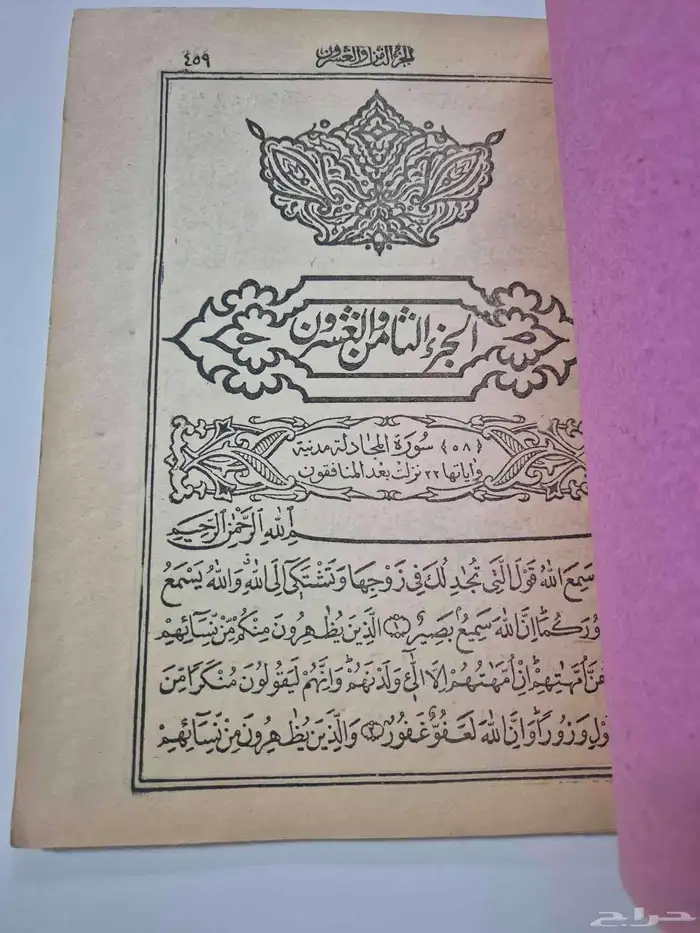 الجزء الثامن والعشرون
٤٥٩
الجزء الثامن والعشرون
﴿٥٨﴾ سورة المجادلة مدنية
وآياتها ٢٢ نزلت بعد المنافقون
ـمِ ٱللهِ ٱلرَّحْمٰنِ ٱلرَّحِيمِ
سَمِعَ اللهُ قَوْلَ الَّتِي تُجَٰدِلُكَ فِي زَوْجِهَا وَتَشْتَكِىٓ إِلَى اللهِ وَاللهُ يَسْمَعُ
وُرَكُمَآ إِنَّ اللهَ سَمِيعٌۢ بَصِيرٌ ﴿١﴾ الَّذِينَ يُظَٰهِرُونَ مِنكُم مِّن نِّسَآئِهِم
هُنَّ أُمَّهَٰتِهِمْ إِنْ أُمَّهَٰتُهُمْ إِلَّا الَّٰٓـِٔي وَلَدْنَهُمْ وَإِنَّهُمْ لَيَقُولُونَ مُنكَرًا مِّنَ
وْلِ وَزُورًا وَإِنَّ اللهَ لَعَفُوٌّ غَفُورٌ ﴿٢﴾ وَالَّذِينَ يُظَٰهِرُونَ مِن نِّسَآئِهِمْ
حراج